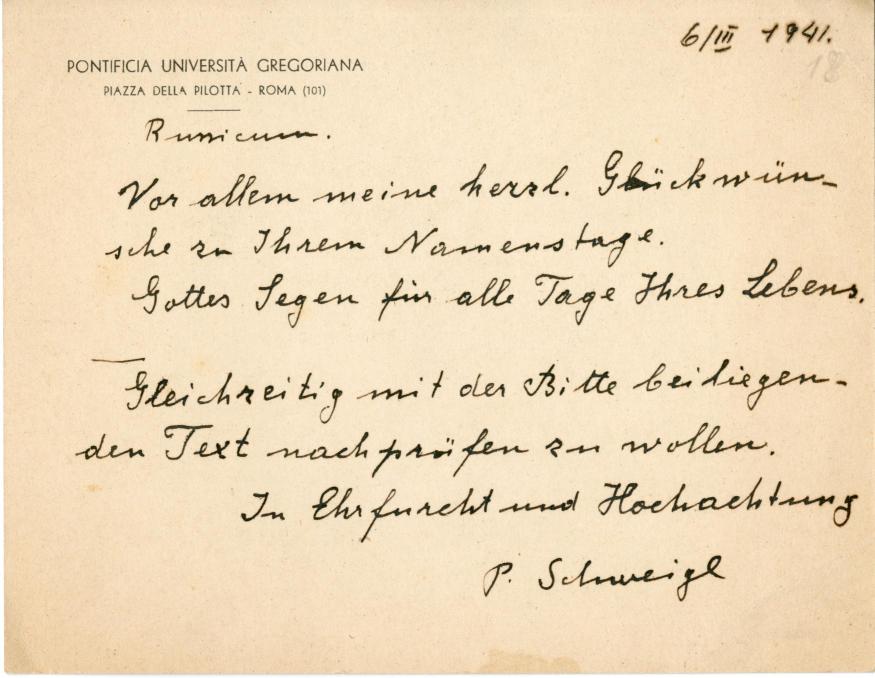 6/III 1941.
18
PONTIFICIA UNIVERSITÀ GREGORIANA
PIAZZA DELLA PILOTTA - ROMA (101)
Russicum.
Vor allem meine herzl. Glückwün-
sche zu Ihrem Namenstage.
Gottes Segen für alle Tage Ihres Lebens.
Gleichzeitig mit der Bitte beiliegen-
den Text nachprüfen zu wollen.
In Ehrfurcht und Hochachtung
P. Schweigl